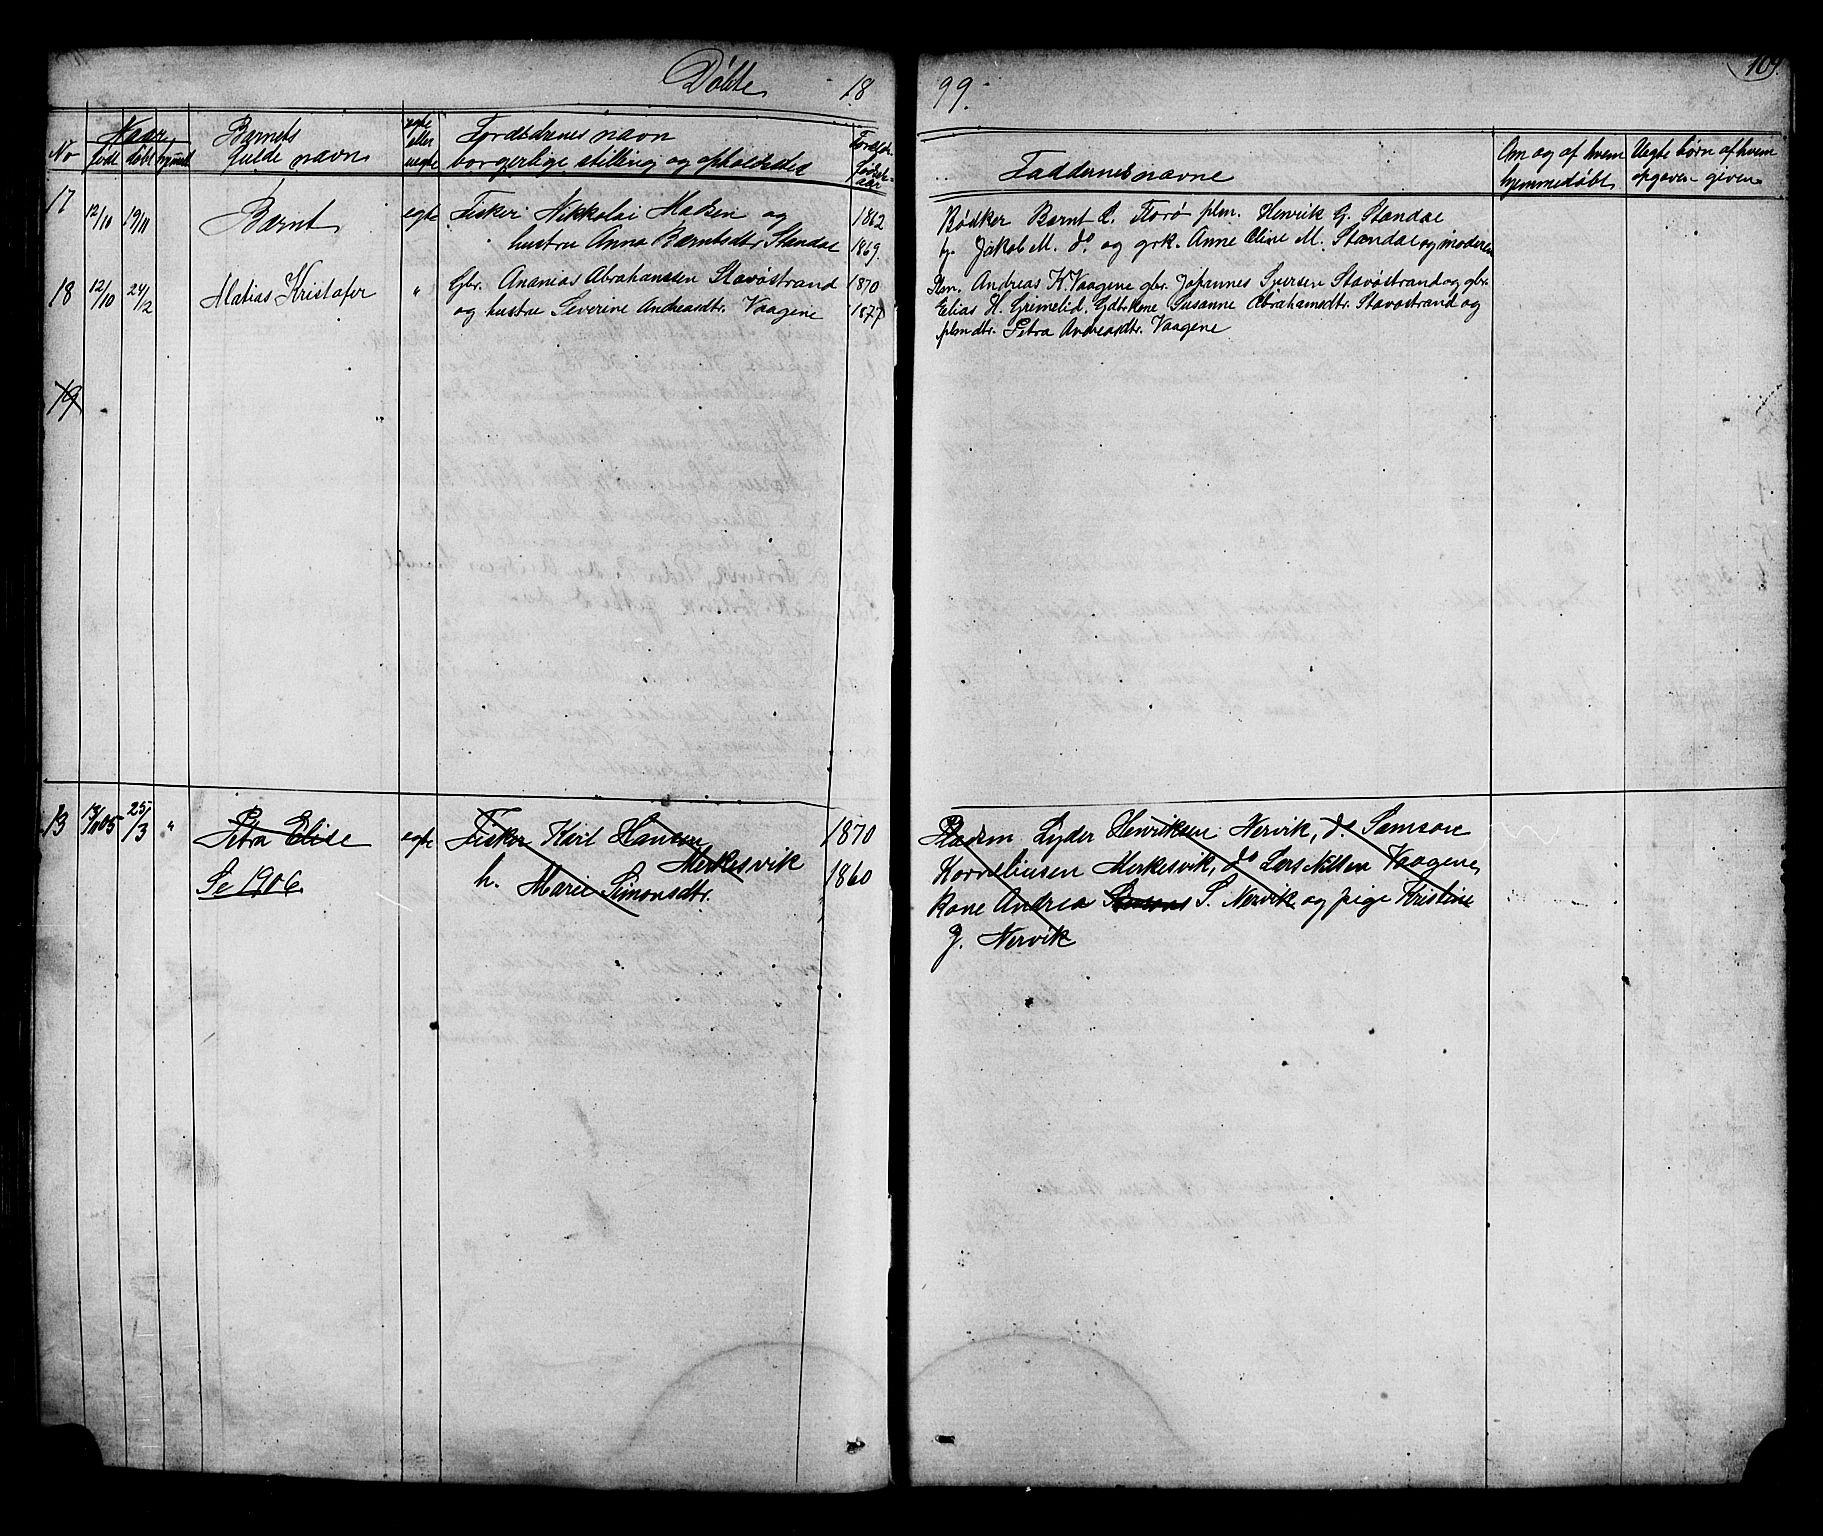 Döbte 18
99.
109.
No
Naar
født døbt hjemdt
Barnets
fulde navn
egte
eller
uegte
Forældrenes navn
borgerlige stilling og opholdssted
Foræld.
fødsels-
aar
Faddernes navne
Om og af hvem
hjemmedøbt
Uegte børn af hvem
opgaven given
17 12/10 19/11 Bernt egte Fisker Nikkolai Madsen og 1862
hustru Anna Berntsdtr. Standal 1869.
Bødker Bernt A. Florø plm. Henrik G. Standal
Jakob M. do og grk. Anne Oline M. Standal og moderen
18 12/10 24/2 Matias Kristofer " Gbr. Ananias Abrahamsen Stavøstrand 1870
og hustru Severine Andreasdtr. Vaagene 1877
Plm. Andreas K. Vaagene gbr. Johannes Iversen Stavøstrand og gbr.
Elias H. Grimelid. Gdbr.kone Susanne Abrahamsdtr. Stavøstrand og
plmdtr. Petra Andreasdtr. Vaagene
19
13 13/11 05 25/3 " Petra Elise egte Fisker Karl Hansen 1870
Merkesvik
Se 1906. h. Marie Simonsdtr. 1860
Pladsm Lyder Henriksen Nervik, do Samson
Korneliusen Merkesvik, do Lars Nilsen Vaagene,
Kone Andrea S. Nervik og pige Kristine
J. Nervik